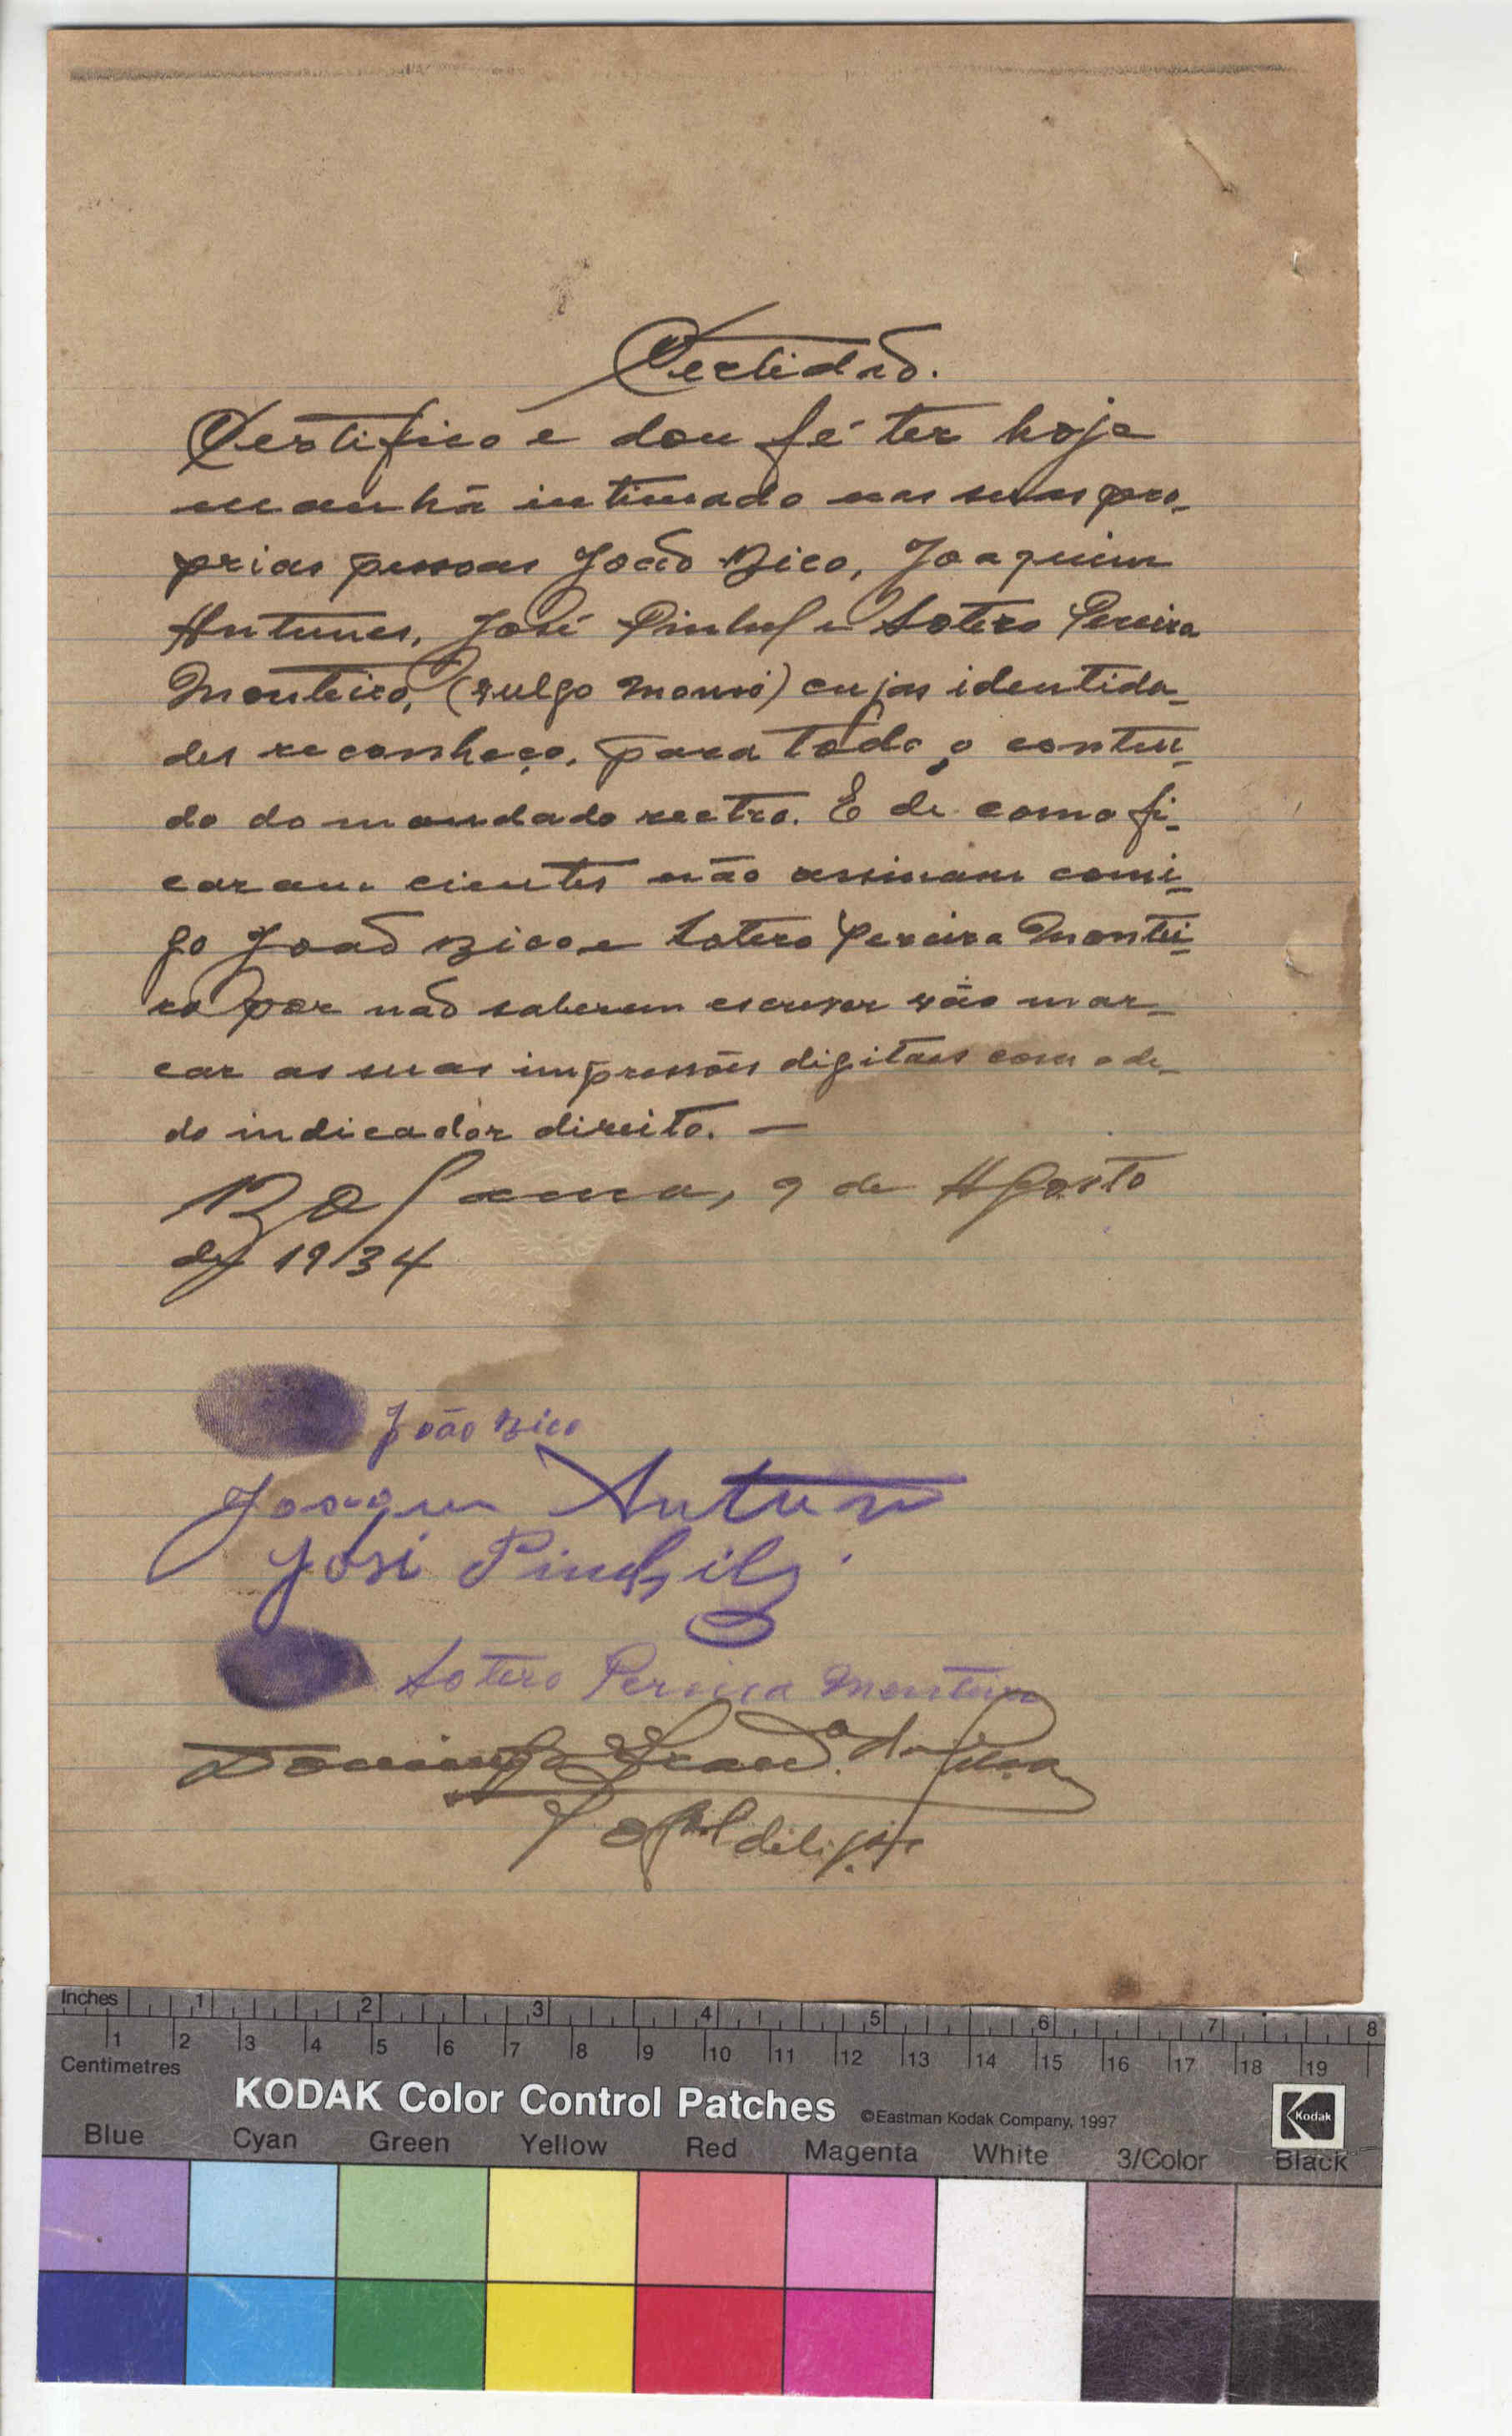 Certidão.
Certifico e dou fé ter hoje
manhã intimado nas suas pro-
prias pessoas João Bico, Joaquim
Antunes, José Pinhel e Sotero Pereira
Monteiro, (vulgo ) cujas identida-
des reconheço, para todo o conteu-
do do mandado rectro. E de como fi-
caram cientes vão assinam comi-
go João Bico e Sotero Pereira Montei-
ro por não saberem escrever vão mar-
car as suas impressões digitaes com o de-
do indicador direito. —
Bolama, 9 de Agosto
de 1934
João Bico
Joaquim Antunes
José Pinhel
Sotero Pereira Monteiro
Domingos da Silva
Inches 1 2 3 4 5 6 7 8
1 2 3 4 5 6 7 8 9 10 11 12 13 14 15 16 17 18 19
Centimetres
KODAK Color Control Patches ©Eastman Kodak Company, 1997 Kodak
Blue Cyan Green Yellow Red Magenta White 3/Color Black